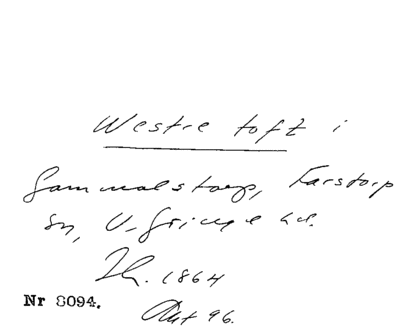 Westre toft i
Gammalstorp, Farstorp
sn, V. Göinge hd.
Th. 1864
Nr 8094.
Akt 96.